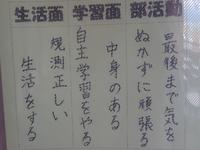 生活面 学習面 部活動
最後まで気を
ぬかずに頑張る
中身のある
自主学習をやる
規測正しい
生活をする